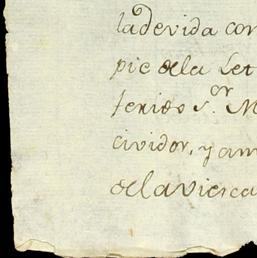 la devida con
pie dela Let
tenido S.or M
cividor, y am
dela viesca